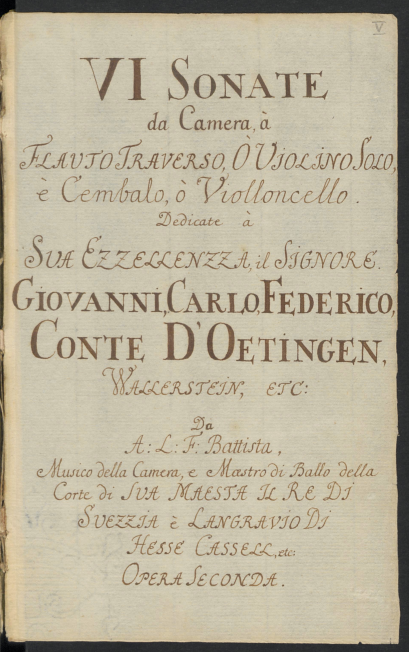 V
VI SONATE
da Camera, à
FLAUTO TRAVERSO, Ò VIOLINO SOLO,
è Cembalo, ò Violloncello.
Dedicate à
SUA EZZELLENZZA, il SIGNORE.
GIOVANNI, CARLO, FEDERICO,
CONTE D'OETINGEN,
WALLERSTEIN, ETC:
Da
A: L: F: Battista,
Musico della Camera, e Mæstro di Ballo della
Corte di SUA MAESTA IL RE DI
SUEZZIA è LANGRAVIO DI
HESSE CASSELL, etc:
OPERA SECONDA.